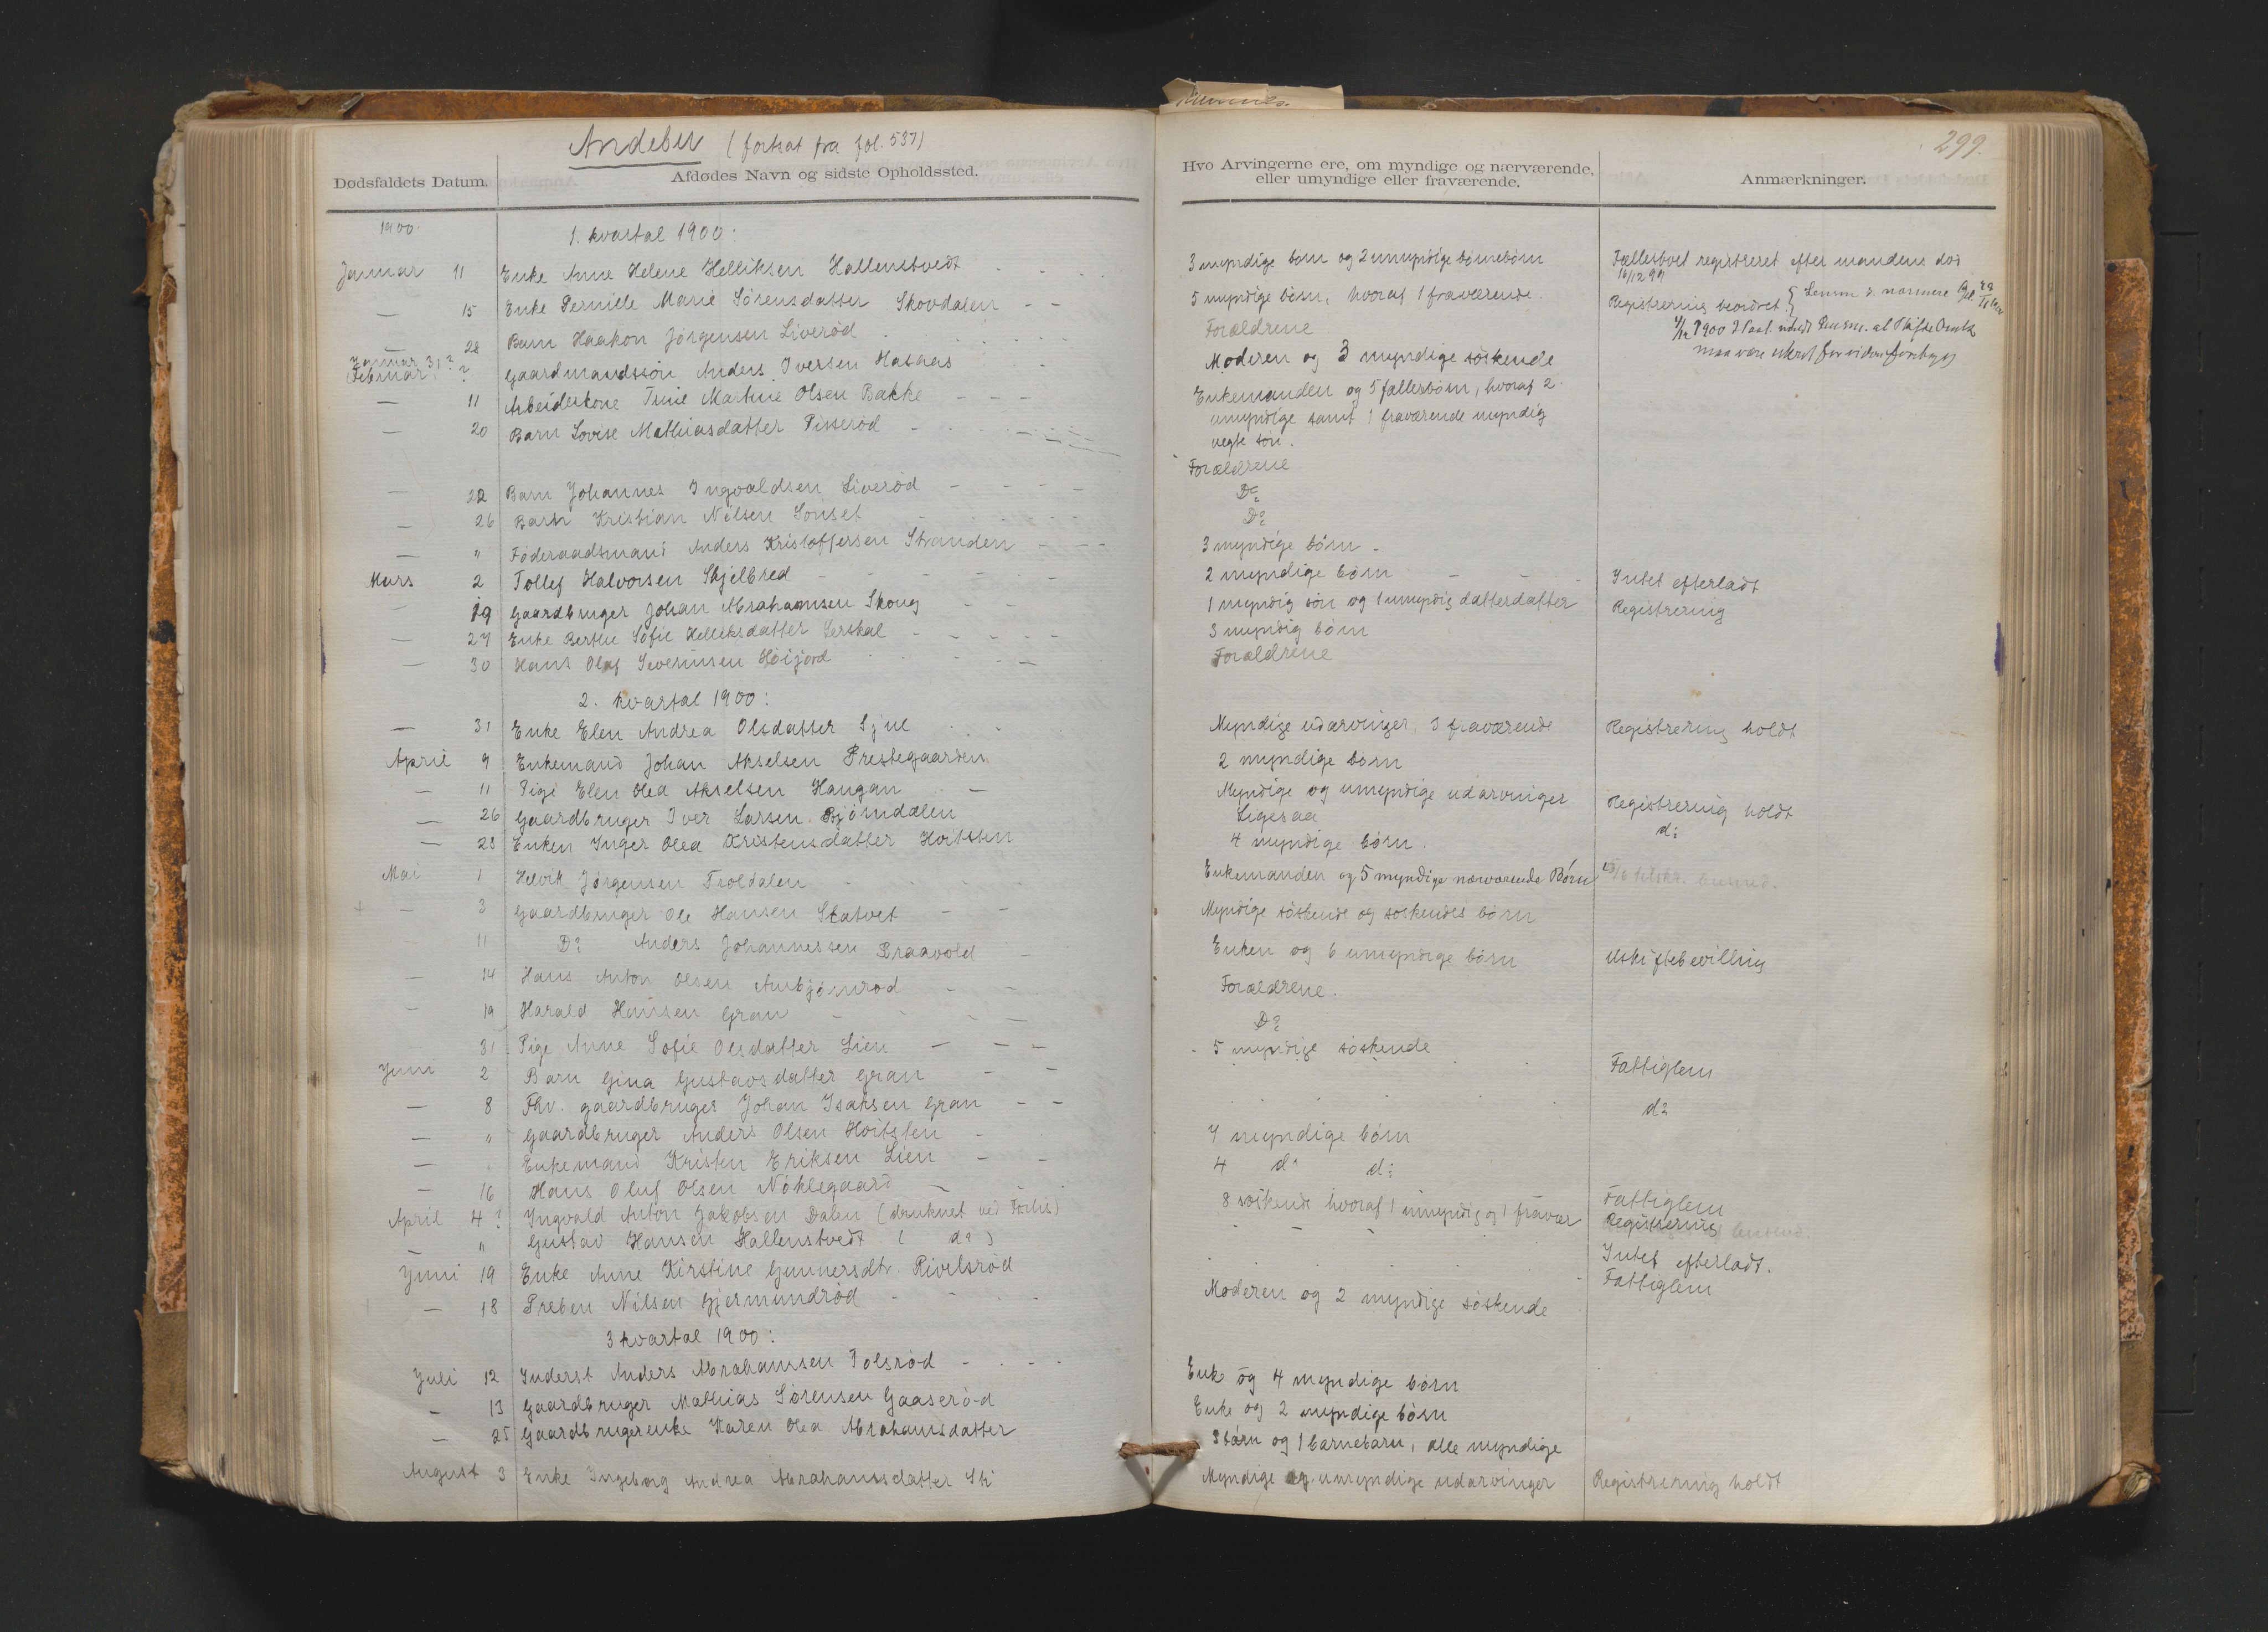 Andebu (fortsat fra fol. 537)
Dødsfaldets Datum. Afdødes Navn og sidste Opholdssted.
1900
1. kvartal 1900:
Januar 11 Enke Anne Helene Helliksen Hallenstvedt
— 15 Enke Pernille Marie Sörensdatter Skovdalen
— 28 Barn Haakon Jørgensen Liveröd
Januar 31?
Februar ? Gaardmandssön Anders Iversen Hasaas
— 11 Arbeiderkone Trine Martine Olsen Bakke
— 20 Barn Lovise Mathiasdatter Pisseröd
— 22 Barn Johannes Ingvaldsen Liveröd
— 26 Barn Kristian Nilsen Sönset
— " Föderaadsmand Anders Kristoffersen Stranden
Mars 2 Tollef Halvorsen Skjelbred
— 19 Gaardbruger Johan Abrahamsen Skoug
— 27 Enke Berthe Sofie Helliksdatter
— 30 Hans Olaf Severinsen Höijord
2. kvartal 1900:
— 31 Enke Elen Andrea Olsdatter Sjue
April 9 Enkemand Johan Akselsen Prestegaarden
— 11 Pige Elen Olea Akselsen Haugan
— 26 Gaardbruger Iver Larsen Björndalen
— 28 Enken Inger Olea Kristensdatter Hvitsten
Mai 1 Helvik Jørgensen Troldalen
— 3 Gaardbruger Ole Hansen Skatvet
— 11 Do Anders Johannessen Praavold
— 14 Hans Anton Olsen Anbjörnröd
— 19 Harald Hansen Gran
31 Pige Anne Sofie Olsdatter Lien
Juni 2 Barn Gina Gustavsdatter Gran
— 8 Fhv. gaardbruger Johan Isaksen Gran
— " Gaardbruger Anders Olsen Hvitsten
— Enkemand Kristen Eriksen Lien
— 16 Hans Oluf Olsen Nöklegaard
April 4? Ingvald Anton Jakobsen Dalen (druknet ved Forlis)
— " Gustav Hansen Hallenstvedt ( do )
Juni 19 Enke Anne Kirstine Gunnersdtr. Rivelsröd
— 18 Preben Nilsen Gjermundröd
3 kvartal 1900:
Juli 12 Inderst Anders Abrahamsen Tolsröd
— 13 Gaardbruger Mathias Sörensen Gaaseröd
— 25 Gaardbrugerenke Karen Olea Abrahamsdatter
August 3 Enke Ingeborg Andrea Abrahamsdatter Ski
299.
Hvo Arvingerne ere, om myndige og nærværende,
eller umyndige eller fraværende.
Anmærkninger.
3 myndige börn og 2 umyndige börnebörn Fællesboet registreret efter mandens död
16/12 99
5 myndige börn, hvoraf 1 fraværende. Registrering beordret
Forældrene
Moderen og 3 myndige söskende
Enkemanden og 5 fællesbörn, hvoraf 2
umyndige samt 1 fraværende myndig
uegte sön.
Forældrene
Do
Do
3 myndige börn
2 myndige börn Intet efterladt
1 myndig sön og 1 umyndig datterdatter Registrering
3 myndig börn
Forældrene
Myndige udarvinger, 3 fraværende Registrering holdt
2 myndige börn
Myndige og umyndige udarvinger Registrering holdt
Ligesaa do
4 myndige börn.
Enkemanden og 5 myndige nærværende Børn
Myndige söskende og söskendes börn
Enken og 6 umyndige börn Uskiftebevilling
Forældrene.
Do
5 myndige söskende
Fattiglem
do
7 myndige börn
4 do do
Fattiglem
8 söskende hvoraf 1 umyndig og 1 fravær Registrering
Intet efterladt.
Fattiglem
Moderen og 2 myndige söskende
Enke og 4 myndige börn
Enke og 2 myndige börn
börn og 1 barnebarn, alle myndige
Myndige og umyndige udarvinger Registrering holdt